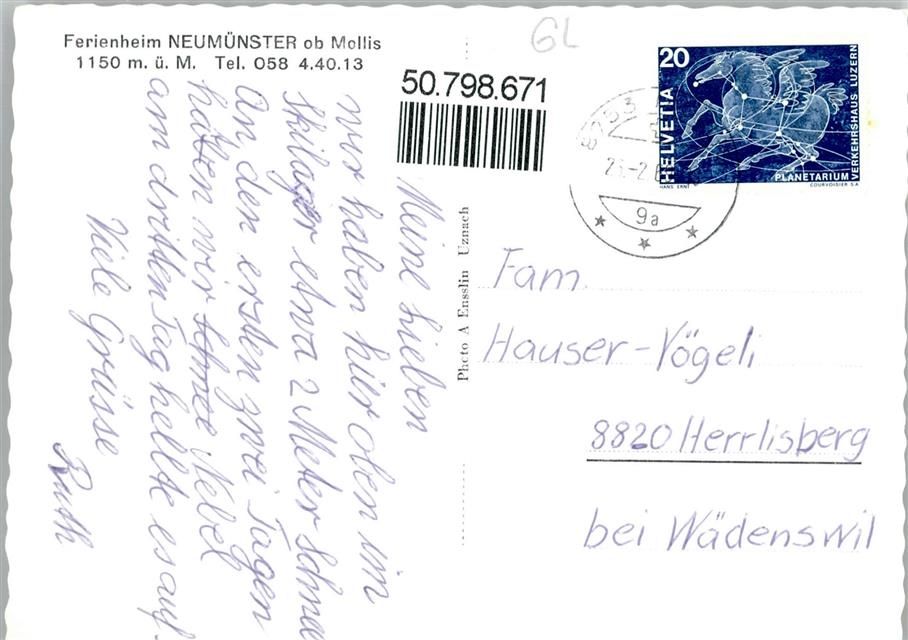 Ferienheim NEUMÜNSTER ob Mollis
1150 m. ü. M. Tel. 058 4.40.13
GL
50.798.671
20
HELVETIA
PLANETARIUM
VERKEHRSHAUS LUZERN
HANS ERNI
COURVOISIER S.A.
8753
9a
Meine Lieben
wir haben hier oben im
Skilager etwa 2 Meter Schnee
An den ersten zwei Tagen
hatten wir Schnee Nebel
am dritten Tag hellte es auf.
Viele Grüsse
Ruth
Photo A Ensslin Uznach
Fam.
Hauser-Vögeli
8820 Herrlisberg
bei Wädenswil